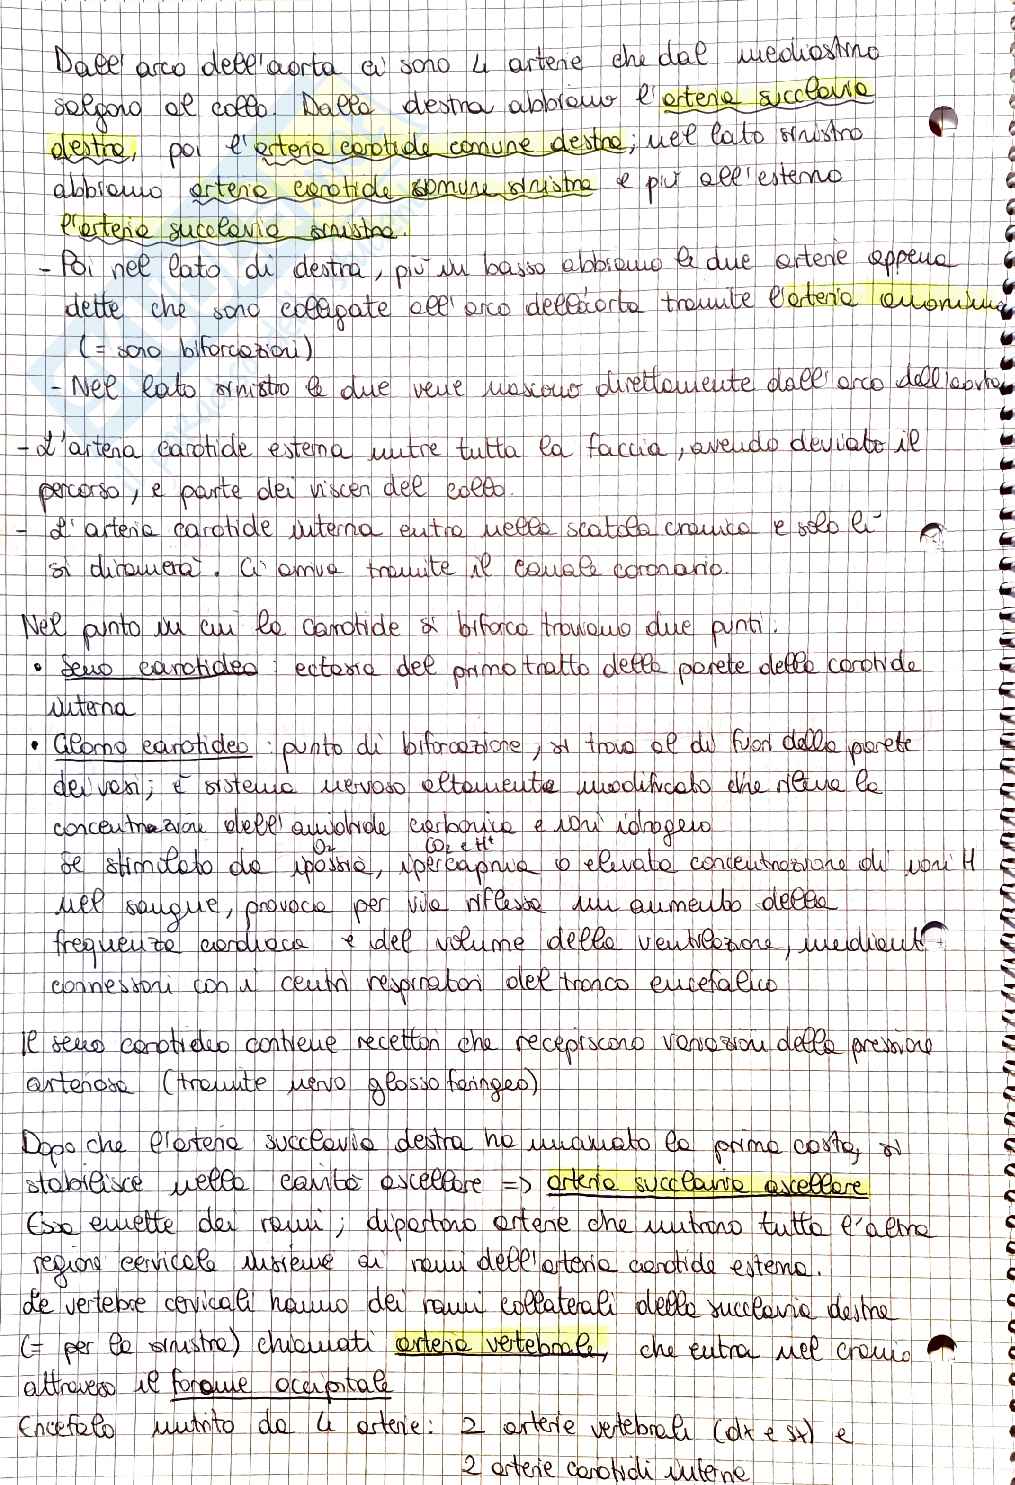 Dall'arco dell'aorta ci sono 4 arterie che dal mediastino
salgono al collo. Dalla destra abbiamo l'arteria succlavia
destra, poi l'arteria carotide comune destra; nel lato sinistro
abbiamo arteria carotide comune sinistra e più all'esterno
l'arteria succlavia sinistra.
- Poi nel lato di destra, più in basso abbiamo le due arterie appena
dette che sono collegate all'arco dell'aorta tramite l'arteria anonima
(= sono biforcazioni)
- Nel lato sinistro le due vene nascono direttamente dall'arco dell'aorta
- L'arteria carotide esterna nutre tutta la faccia, avendo deviato il
percorso, e parte dei visceri del collo.
- L'arteria carotide interna entra nella scatola cranica e solo lì
si diramerà. Ci arriva tramite il canale coronario.
Nel punto in cui la carotide si biforca troviamo due punti:
• Seno carotideo: ectasia del primo tratto della parete della carotide
interna
• Glomo carotideo: punto di biforcazione, si trova al di fuori della parete
dei vasi; è sistema nervoso altamente modificato che rileva la
concentrazione dell'anidride carbonica e ioni idrogeno
O2 CO2 e H+
Se stimolato da ipossia, ipercapnia o elevata concentrazione di ioni H
nel sangue, provoca per via riflessa un aumento della
frequenza cardiaca e del volume della ventilazione, mediante
connessioni con i centri respiratori del tronco encefalico
Il seno carotideo contiene recettori che recepiscono variazioni della pressione
arteriosa (tramite nervo glossofaringeo)
Dopo che l'arteria succlavia destra ha incrociato la prima costa, si
stabilisce nella cavità ascellare => arteria succlavia ascellare
Essa emette dei rami; dipartono arterie che nutrono tutta l'altra
regione cervicale insieme ai rami dell'arteria carotide esterna.
Le vertebre cervicali hanno dei rami collaterali della succlavia destra
(= per la sinistra) chiamati arteria vertebrale, che entra nel cranio
attraverso il forame occipitale
Encefalo nutrito da 4 arterie: 2 arterie vertebrali (dx e sx) e
2 arterie carotidi interne